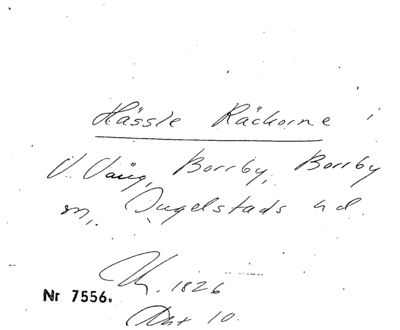 Hässle Räckorne i
V. Vång, Borrby, Borrby
sn, Ingelstads hd.
Uk. 1826
Nr 7556.
Akt 10.